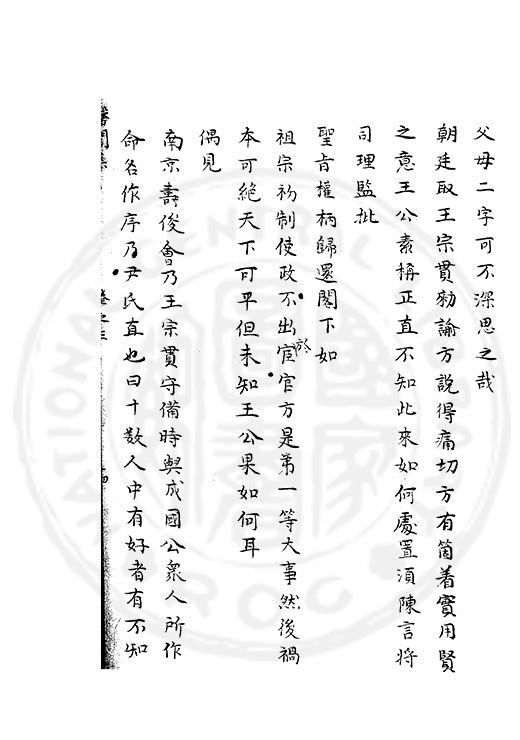 父母二字可不深思之哉
朝廷取王宗貫勅諭方說得痛切方有箇着實用賢
之意王公素稱正直不知此來如何處置須陳言將
司理監批
聖旨權柄歸還閣下如
祖宗初制使政不出於宦官方是第一等大事然後禍
本可絕天下可平但未知王公果如何耳
偶見
南京壽俊會乃王宗貫守備時與成國公衆人所作
命名作序乃尹氏直也曰十数人中有好者有不知
卷之三
NATIONAL CENTRAL LIBRARY
ROC